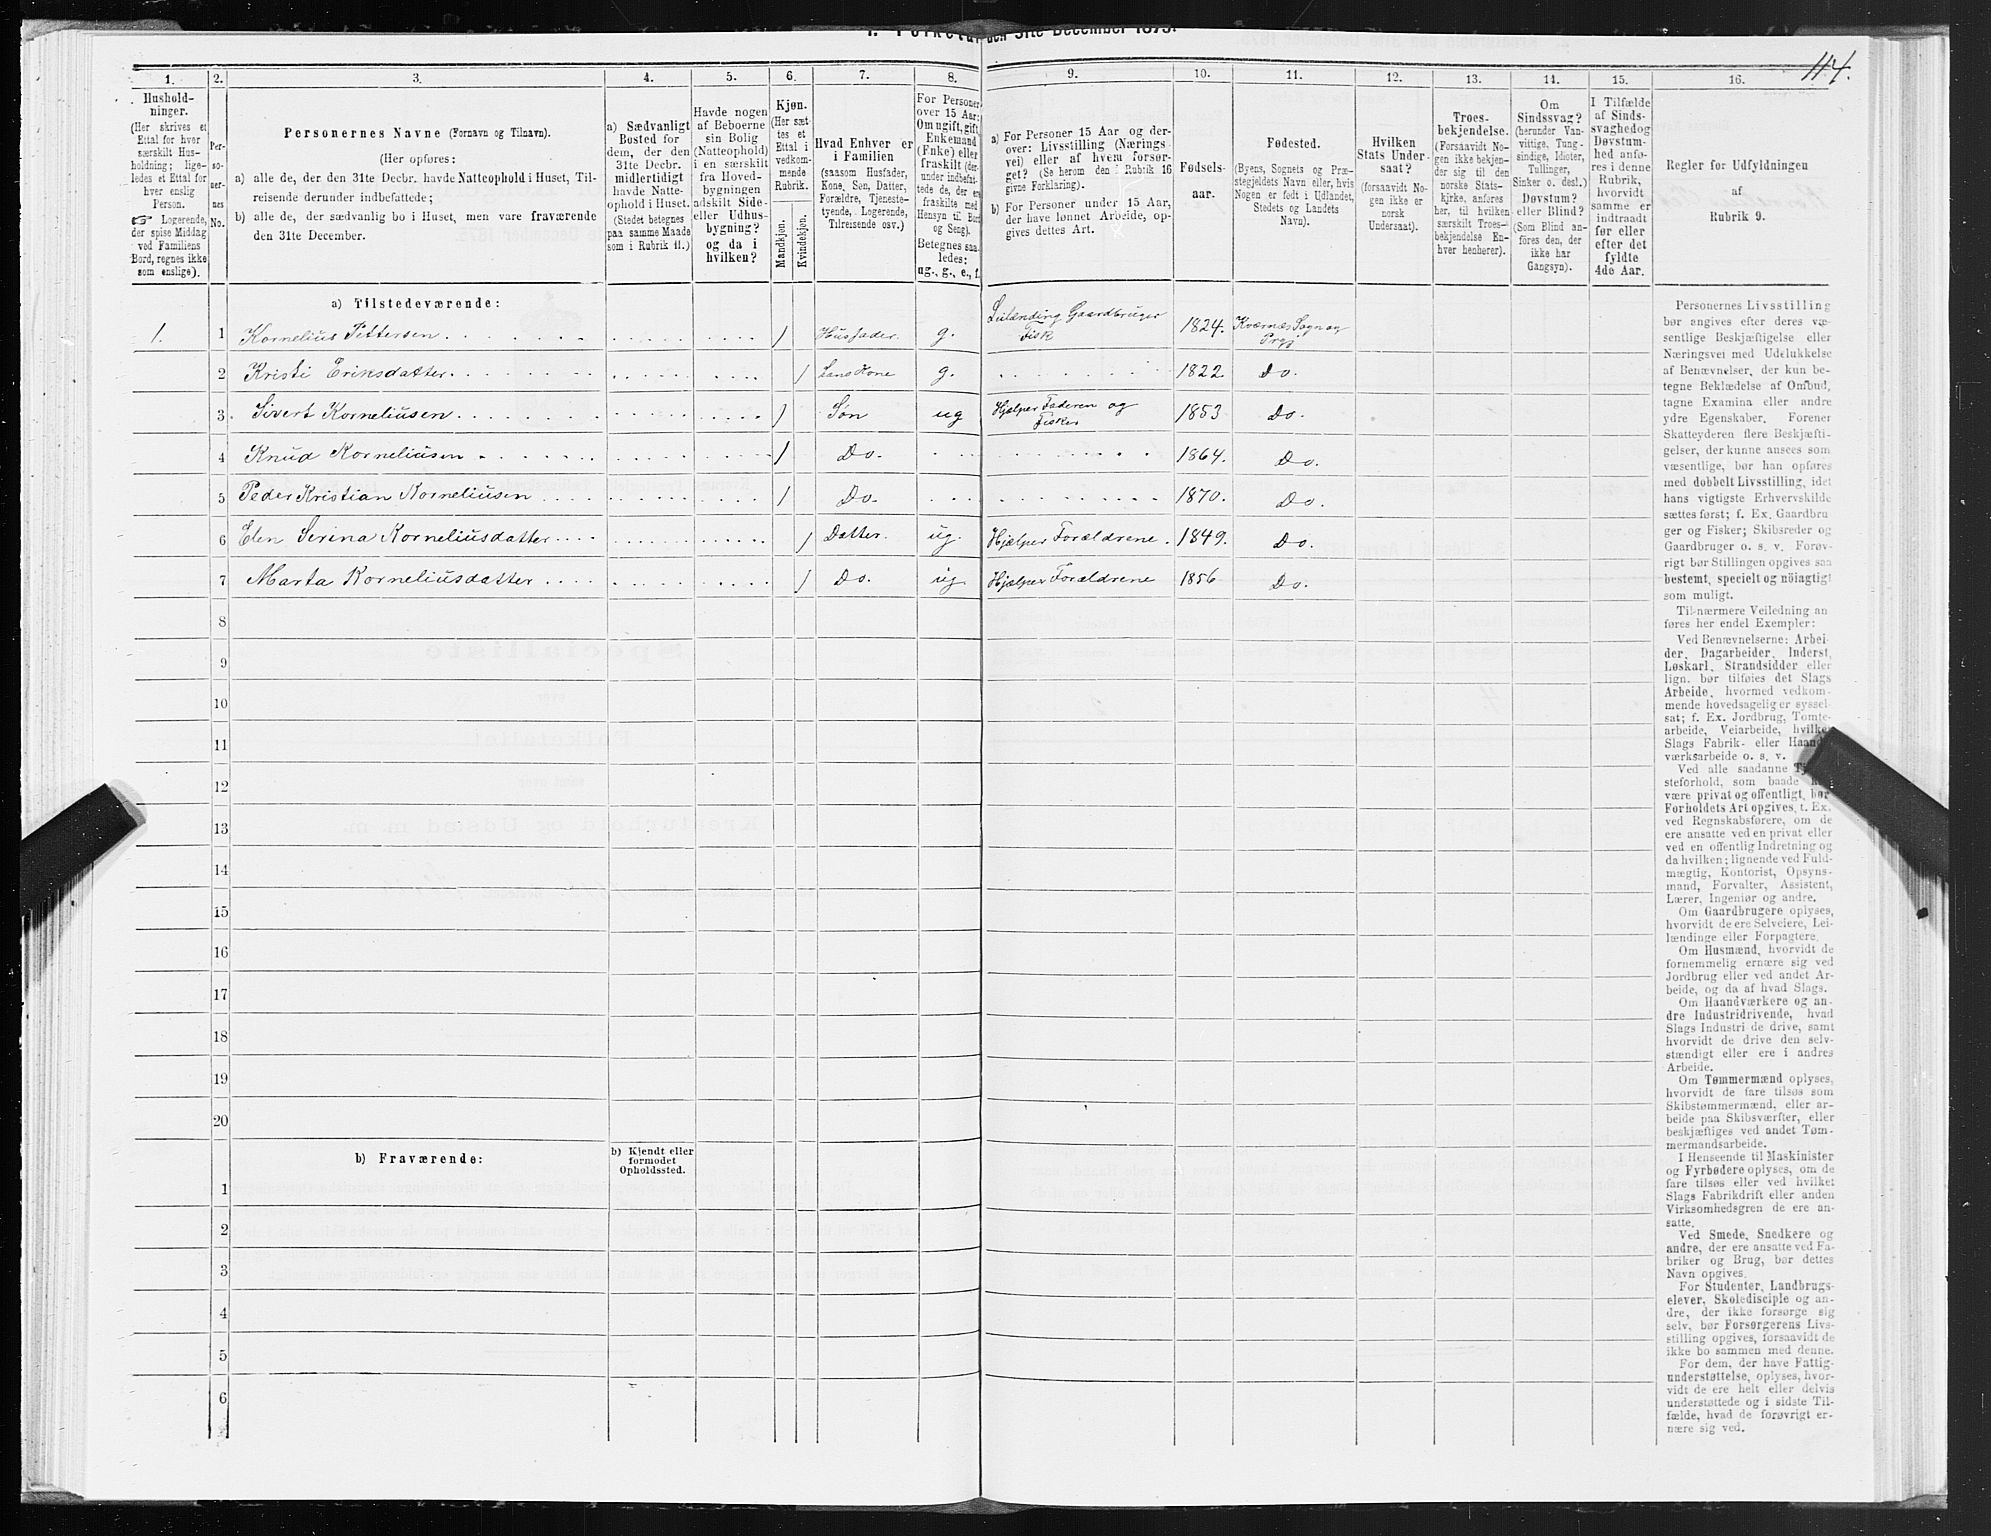 I. Folketal den 31te December 1875.
114.
1.
2.
3.
4.
5.
6.
7.
8.
9.
10.
11.
12.
13.
14.
15.
16.
Hushold-
ninger.
(Her skrives et
Ettal for hver
særskilt Hus-
holdning; lige-
ledes et Ettal for
hver enslig
Person.
☞ Logerende,
der spise Middag
ved Familiens
Bord, regnes ikke
som enslige).
Per-
so-
ner-
nes
No.
Personernes Navne (Fornavn og Tilnavn).
(Her opføres:
a) alle de, der den 31te Decbr. havde Natteophold i Huset, Til-
reisende derunder indbefattede;
b) alle de, der sædvanlig bo i Huset, men vare fraværende
den 31te December.
a) Sædvanligt
Bosted for
dem, der den
31te Decbr.
midlertidigt
havde Natte-
ophold i Huset.
(Stedet betegnes
paa samme Maade
som i Rubrik 11.)
Havde nogen
af Beboerne
sin Bolig
(Natteophold)
i en særskilt
fra Hoved-
bygningen
adskilt Side-
eller Udhus-
bygning?
og da i
hvilken?
Kjøn.
(Her sæt-
tes et
Ettal i
vedkom-
mende
Rubrik.
Mandkjøn.
Kvindekjøn.
Hvad Enhver er
i Familien
(saasom Husfader,
Kone, Søn, Datter,
Forældre, Tjeneste-
tyende, Logerende,
Tilreisende osv.)
For Personer
over 15 Aar:
Om ugift, gift,
Enkemand
(Enke) eller
fraskilt (der-
under indbefat-
tede de, der ere
fraskilte med
Hensyn til Bord
og Seng).
Betegnes saa-
ledes:
ug., g., e., f.
a) For Personer 15 Aar og der-
over: Livsstilling (Nærings-
vei) eller af hvem forsør-
get? (Se herom den i Rubrik 16
givne Forklaring).
b) For Personer under 15 Aar,
der have lønnet Arbeide, op-
gives dettes Art.
Fødsels-
aar.
Fødested.
(Byens, Sognets og Præ-
stegjeldets Navn eller, hvis
Nogen er født i Udlandet,
Stedets og Landets
Navn).
Hvilken
Stats Under-
saat?
(forsaavidt No-
gen ikke er
norsk
Undersaat).
Troes-
bekjendelse.
(Forsaavidt No-
gen ikke bekjen-
der sig til den
norske Stats-
kirke, anføres
her, til hvilken
særskilt Troes-
bekjendelse En-
hver henhører).
Om
Sindssvag?
(herunder Van-
vittige, Tung-
sindige, Idioter,
Tullinger,
Sinker o. desl.)
Døvstum?
eller Blind?
(Som Blind an-
føres den, der
ikke har
Gangsyn).
I Tilfælde
af Sinds-
svaghed og
Døvstum-
hed anfø-
res i denne
Rubrik,
hvorvidt
samme er
indtraadt
før eller
efter det
fyldte
4de Aar.
Regler for Udfyldningen
af
Rubrik 9.
a) Tilstedeværende:
1. 1 Kornelius Pettersen 1 Husfader. g. Leilænding Gaardbruger Fisk 1824. Kværnæs Sogn og Prgj
2 Kristi Eriksdatter 1 hans Kone g. 1822 Do.
3 Sivert Korneliusen 1 Søn ug Hjælper Faderen og Fisker 1853 Do.
4 Knud Korneliusen 1 Do. 1864. Do.
5 Peder Kristian Korneliusen 1 Do. 1870. Do.
6 Elen Serina Korneliusdatter 1 Datter. ug. Hjælper Forældrene. 1849. Do.
7 Marta Korneliusdatter 1 Do. ug Hjælper Forældrene 1856 Do.
8
9
10
11
12
13
14
15
16
17
18
19
20
b) Fraværende:
b) Kjendt eller
formodet
Opholdssted.
1
2
3
4
5
6
Personernes Livsstilling
bør angives efter deres væ-
sentlige Beskjæftigelse eller
Næringsvei med Udelukkelse
af Benævnelser, der kun be-
tegne Beklædelse af Ombud,
tagne Examina eller andre
ydre Egenskaber. Forener
Skatteyderen flere Beskjæfti-
gelser, der kunne ansees som
væsentlige, bør han opføres
med dobbelt Livsstilling, idet
hans vigtigste Erhvervskilde
sættes først; f. Ex. Gaardbru-
ger og Fisker; Skibsreder og
Gaardbruger o. s. v. Forøv-
rigt bør Stillingen opgives saa
bestemt, specielt og nöiagtigt
som muligt.
Til nærmere Veiledning an
føres her endel Exempler:
Ved Benævnelserne: Arbei-
der, Dagarbeider, Inderst,
Løskarl, Strandsidder eller
lign. bør tilføies det Slags
Arbeide, hvormed vedkom-
mende hovedsagelig er syssel-
sat; f. Ex. Jordbrug, Tomte-
arbeide, Veiarbeide, hvilket
Slags Fabrik- eller Haand-
værksarbeide o. s. v.
Ved alle saadanne Tj
steforhold, som baade
være privat og offentligt, bør
Forholdets Art opgives, t. Ex.
ved Regnskabsførere, om de
ere ansatte ved en privat eller
ved en offentlig Indretning og
da hvilken; lignende ved Fuld-
mægtig, Kontorist, Opsyns-
mand, Forvalter, Assistent,
Lærer, Ingeniør og andre.
Om Gaardbrugere oplyses,
hvorvidt de ere Selveiere, Lei-
lændinge eller Forpagtere.
Om Husmænd, hvorvidt de
fornemmelig ernære sig ved
Jordbrug eller ved andet Ar-
beide, og da af hvad Slags.
Om Haandværkere og an-
dre Industridrivende, hvad
Slags Industri de drive, samt
hvorvidt de drive den selv-
stændigt eller ere i andres
Arbeide.
Om Tømmermænd oplyses,
hvorvidt de fare tilsøs som
Skibstømmermænd, eller ar-
beide paa Skibsværfter, eller
beskjæftiges ved andet Tøm-
mermandsarbeide.
I Henseende til Maskinister
og Fyrbødere oplyses, om de
fare tilsøs eller ved hvilket
Slags Fabrikdrift eller anden
Virksomhedsgren de ere an-
satte.
Ved Smede, Snedkere og
andre, der ere ansatte ved Fa-
briker og Brug, bør dettes
Navn opgives.
For Studenter, Landbrugs-
elever, Skoledisciple og an-
dre, der ikke forsørge sig
selv, bør Forsørgerens Livs-
stilling opgives, forsaavidt de
ikke bo sammen med denne.
For dem, der have Fattig-
understøttelse, oplyses, hvor-
vidt de ere helt eller delvis
understøttede og i sidste Til-
fælde, hvad de forøvrigt er-
nære sig ved.